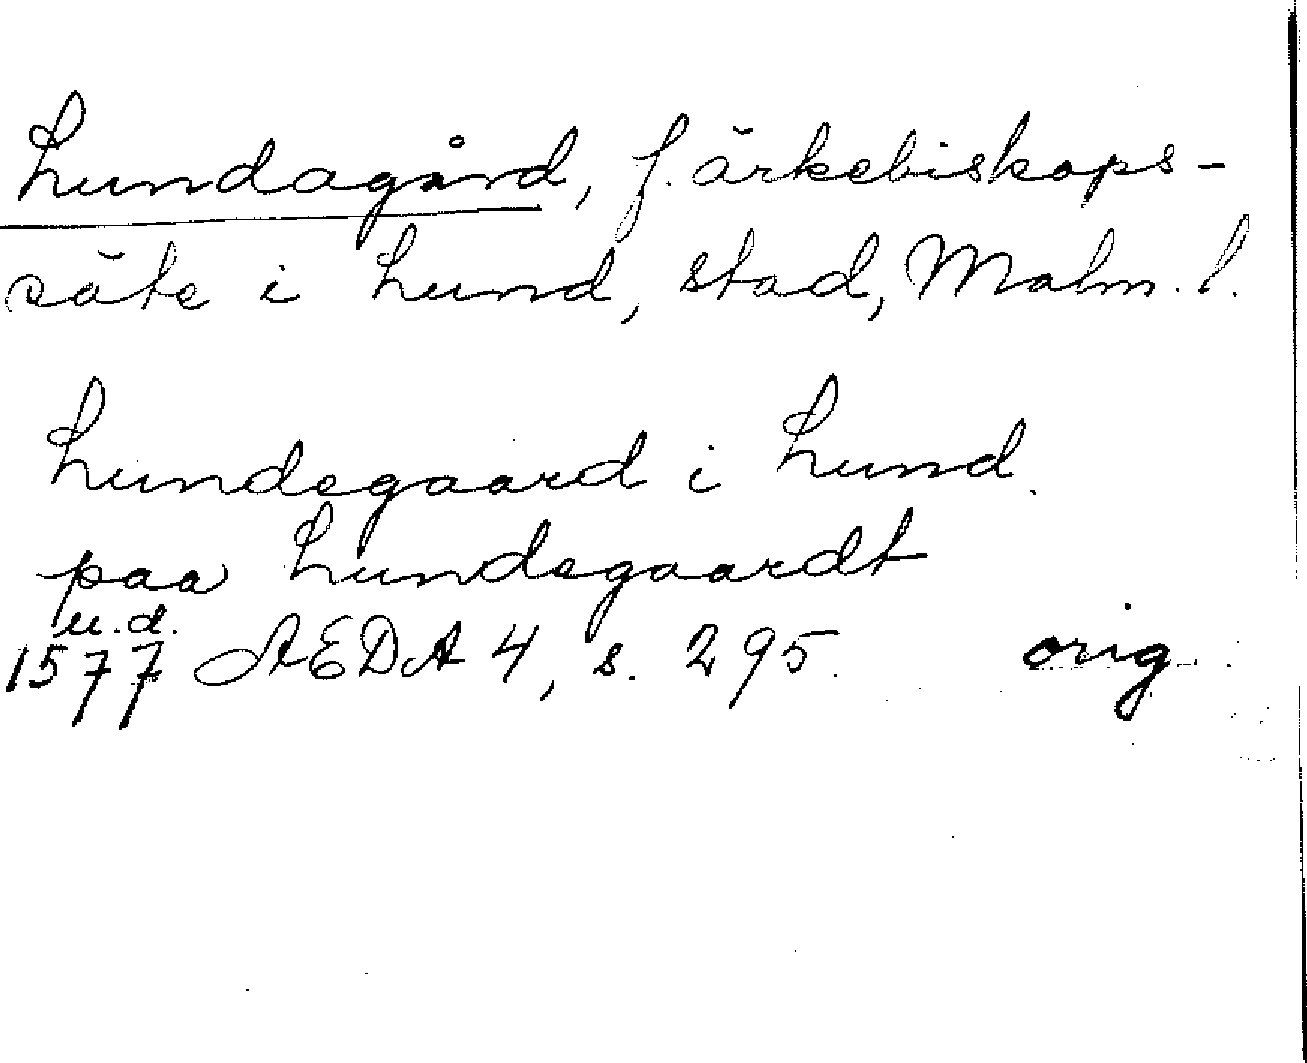 Lundagård, f. ärkebiskops-
säte i Lund, stad, Malm. l.
Lundegaard i Lund
paa Lundegaardt
u.d.
1577 AEDA 4, s. 295. orig